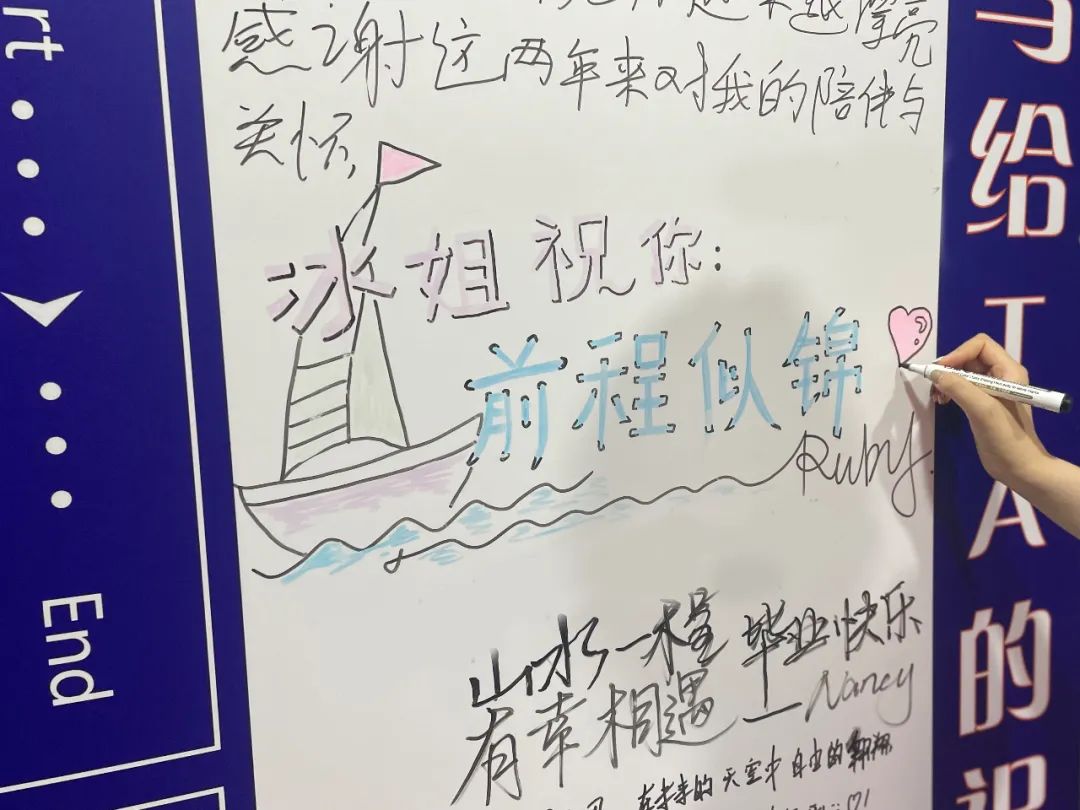 越漂亮
感谢这两年来对我的陪伴与
关怀,
冰姐祝你:
前程似锦
Ruby.
山水一程 毕业快乐
有幸相遇 —Nancy
在未来的天空中自由的翱翔
rt
End
写给TA的祝